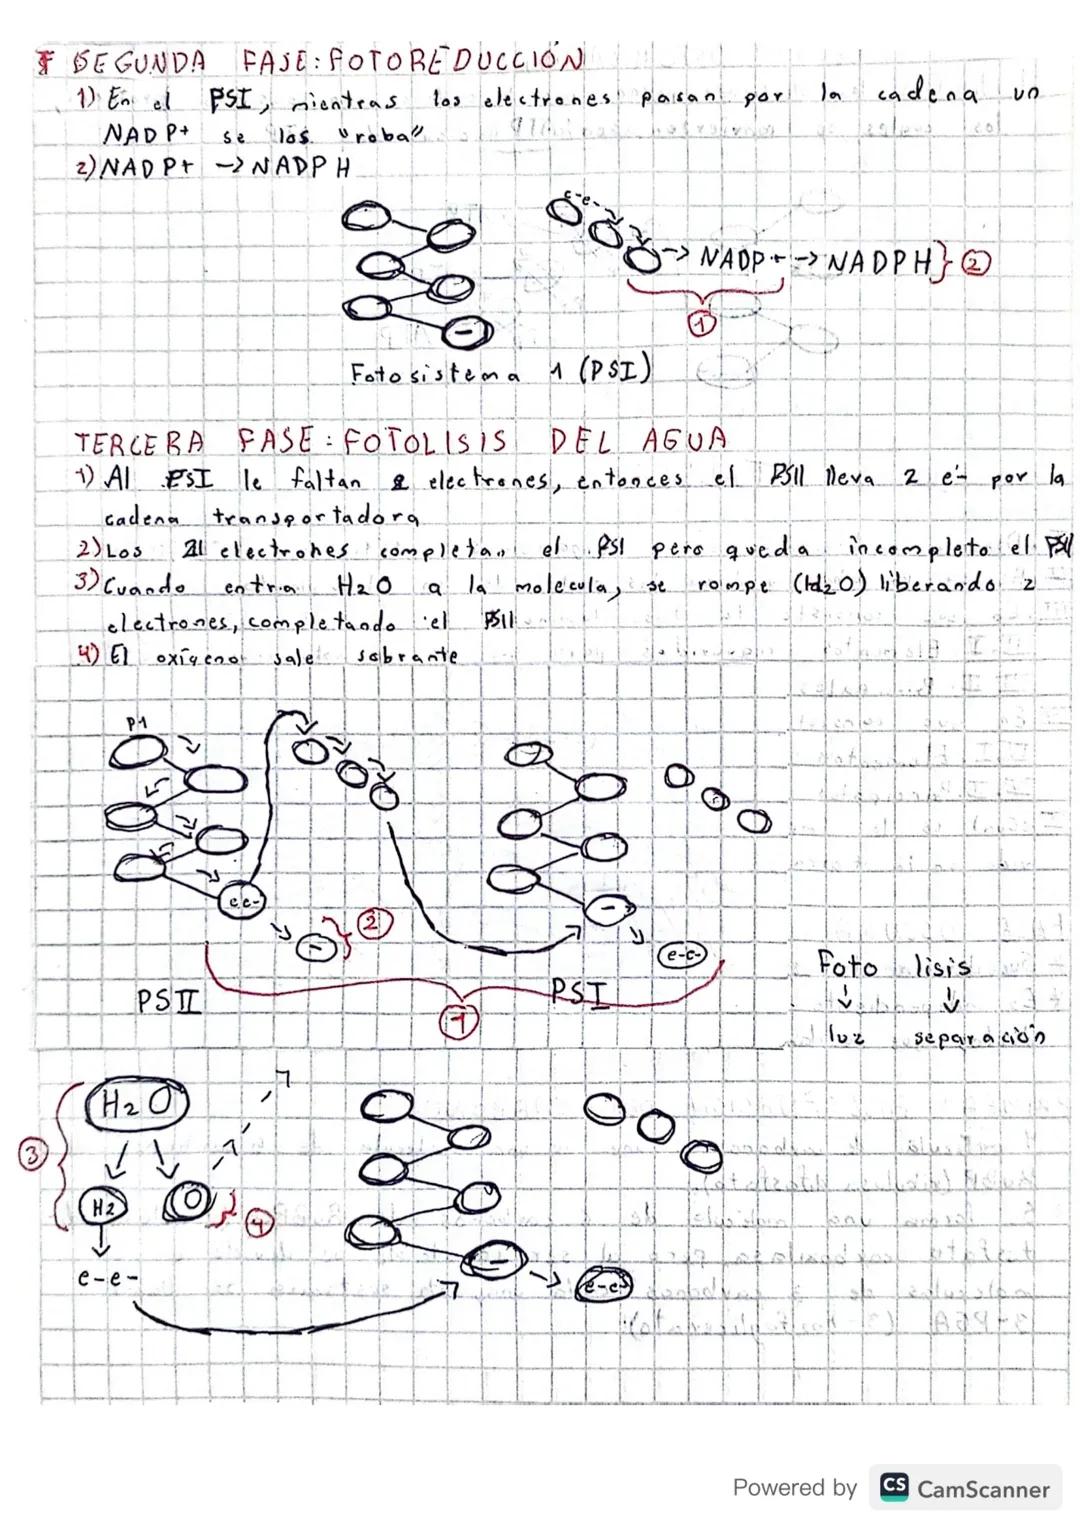 SEGUNDA FASE: FOTOREDUCCIÓN
1) En el PSI, mientras los electrones pasan por la cadena un
NADP+ se los "roba"
2) NADP+ -> NADPH
e-e-
-> NADP+ -> NADPH} 2
1
-
Fotosistema 1 (PSI)
TERCERA FASE: FOTOLISIS DEL AGUA
1) Al PSI le faltan 2 electrones, entonces el PSII lleva 2 e- por la
cadena transportadora
2) Los electrones completan el PSI pero queda incompleto el PSII
3) Cuando entra H2O a la molecula, se rompe (H2O) liberando 2
electrones, completando el PSII
4) El oxígeno sale sobrante
P1
ee-
-
} 2
-
e-e-
PSII
PSI
1
Foto lisis
luz separación
H2O
3
H2
O
} 4
e-e-
-
e-e-
Powered by CS CamScanner